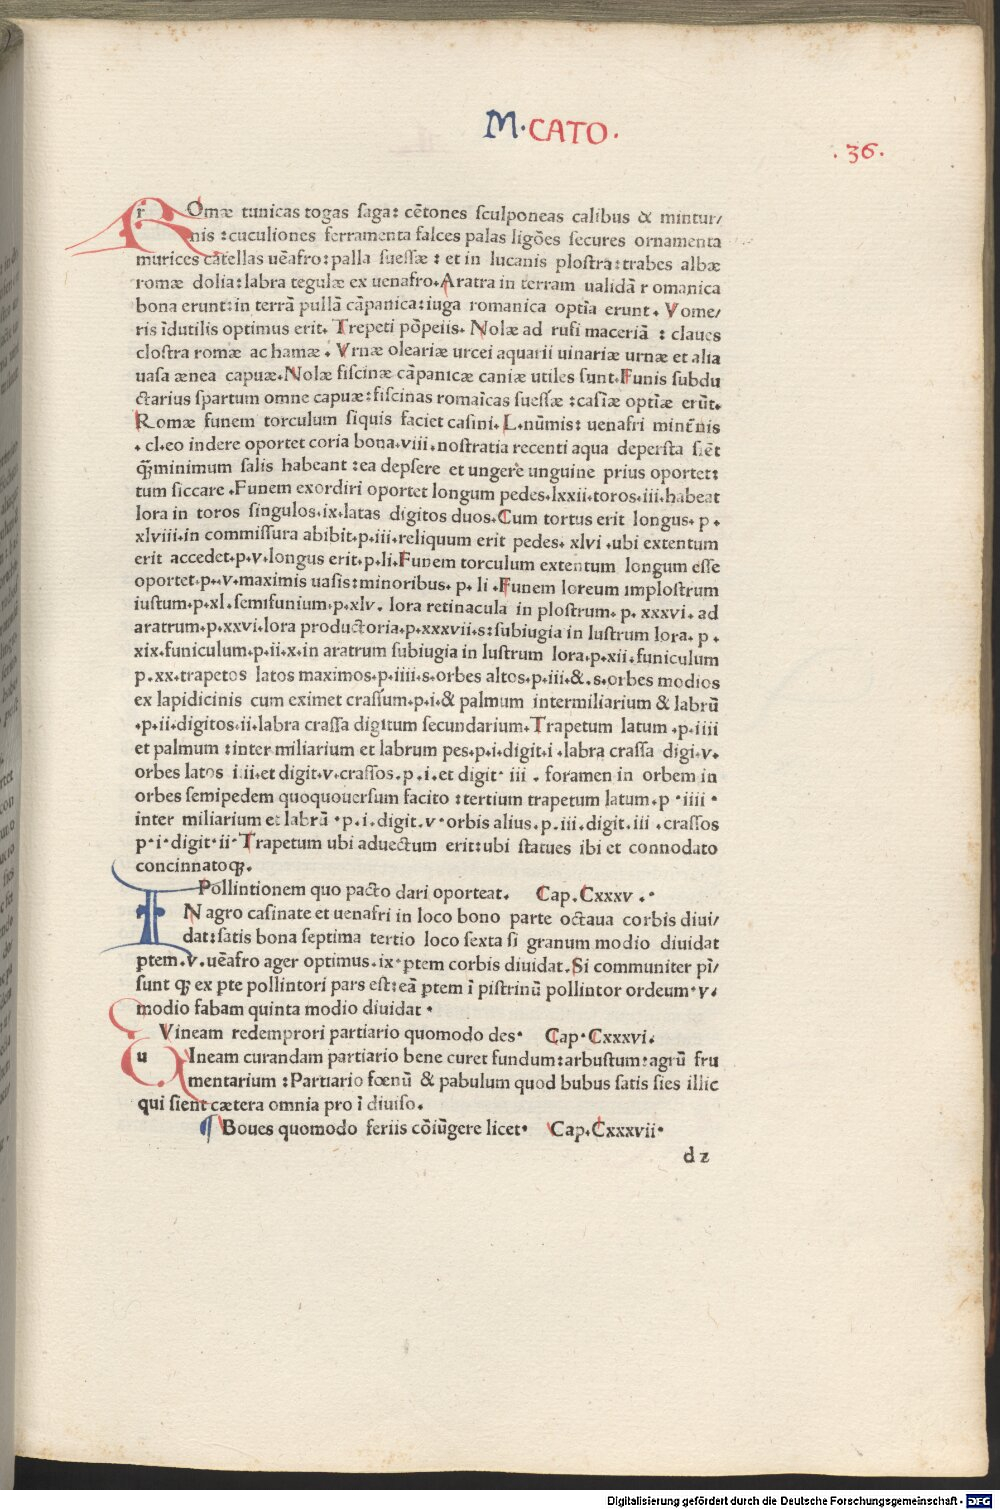 M. CATO.
.36.
ROmæ tunicas togas saga: cētones sculponeas calibus & mintur/
nis :cuculiones ferramenta falces palas ligōes secures ornamenta
murices catellas uēafro: palla suessæ : et in lucanis plostra: trabes albæ
romæ dolia: labra tegulæ ex uenafro. Aratra in terram ualidā romanica
bona erunt: in terrā pullā cāpanica: iuga romanica optīa erunt. Vome/
ris īdutilis optimus erit. Trepeti pōpeiis. Nolæ ad rufi maceriā : claues
clostra romæ ac hamæ. Vrnæ oleariæ urcei aquarii uinariæ urnæ et alia
uasa ænea capuæ. Nolæ fiscinæ cāpanicæ caniæ utiles sunt. Funis subdu
ctarius spartum omne capuæ: fiscinas romaīcas suessæ :casīæ optīæ erūt.
Romæ funem torculum siquis faciet casini. L. nūmis: uenafri minēnis
. cl. eo indere oportet coria bona. viii. nostratia recenti aqua depersta siēt
q̄minimum salis habeant :ea depsere et ungere unguine prius oportet:
tum siccare . Funem exordiri oportet longum pedes. lxxii. toros. iii. habeat
lora in toros singulos. ix. latas digitos duos. Cum tortus erit longus. p .
xlviii. in commissura abibit. p. iii. reliquum erit pedes. xlvi . ubi extentum
erit accedet. p. v. longus erit. p. li. Funem torculum extentum longum esse
oportet. p. .v. maximis uasis: minoribus. p. li . Funem loreum implostrum
iustum. p. xl. semifunium. p. xlv. lora retinacula in plostrum. p. xxxvi. ad
aratrum. p. xxvi. lora productoria. p. xxxvii. s: subiugia in lustrum lora. p .
xix. funiculum. p. ii. x. in aratrum subiugia in lustrum lora. p. xii. funiculum
p. xx. trapetos latos maximos. p. iiii. s. orbes altos. p. iii. &. s. orbes modios
ex lapidicinis cum eximet crassum. p. i. & palmum intermiliarium & labrū
. p. ii. digitos. ii. labra crassa digitum secundarium. Trapetum latum . p. iiii
et palmum : inter miliarium et labrum pes. p. i. digit. i . labra crassa digi. v.
orbes latos iiii. et digit. v. crassos. p . i. et digit. iii . foramen in orbem in
orbes semipedem quoquouersum facito : tertium trapetum latum. p . iiii .
inter miliarium et labrū . p. i. digit. v . orbis alius. p. iii. digit. iii . crassos
p. i. digit. ii. Trapetum ubi aduectum erit: ubi statues ibi et connodato
concinnatoq;.
Pollintionem quo pacto dari oporteat. Cap. Cxxxv . .
IN agro casinate et uenafri in loco bono parte octaua corbis diui/
dat: satis bona septima tertio loco sexta si granum modio diuidat
ptem. v. uēafro ager optimus. ix. ptem corbis diuidat. Si communiter pī/
sunt q; ex pte pollintori pars est: eā ptem ī pistrinū pollintor ordeum. v.
modio fabam quinta modio diuidat .
Vineam redemprori partiario quomodo des. Cap. Cxxxvi.
uIneam curandam partiario bene curet fundum: arbustum: agrū fru
mentarium : Partiario fœnū & pabulum quod bubus satis sies illic
qui sient cætera omnia pro ī diuiso.
¶ Boues quomodo feriis cōiūgere licet. Cap. Cxxxvii.
d z
Digitalisierung gefördert durch die Deutsche Forschungsgemeinschaft - DFG